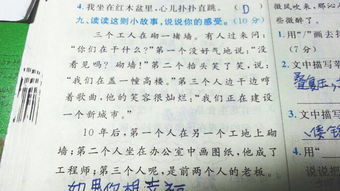 4.我坐在红木盆里,心儿扑扑直跳。 (D)
九、读读这则小故事,说说你的感受。(10分)
三个工人在砌一堵墙。有人过来问:
“你们在干什么?”第一个没好气地说:“没
看见吗?砌墙!”第二个抬头笑了笑,说:
“我们在盖一幢高楼。”第三个人边干边哼
着歌曲,他的笑容很灿烂:“我们正在建设
一个新城市。”
10年后,第一个人在另一个工地上砌
墙;第二个人坐在办公室中画图纸,他成了
工程师;第三个人呢,是前两个人的老板。
如果你想幸福
微风吹来,那沁
些微醉了。
用“/”画去括
(7分)
2.文中描写草
3.文中描写
4.用“
说说把